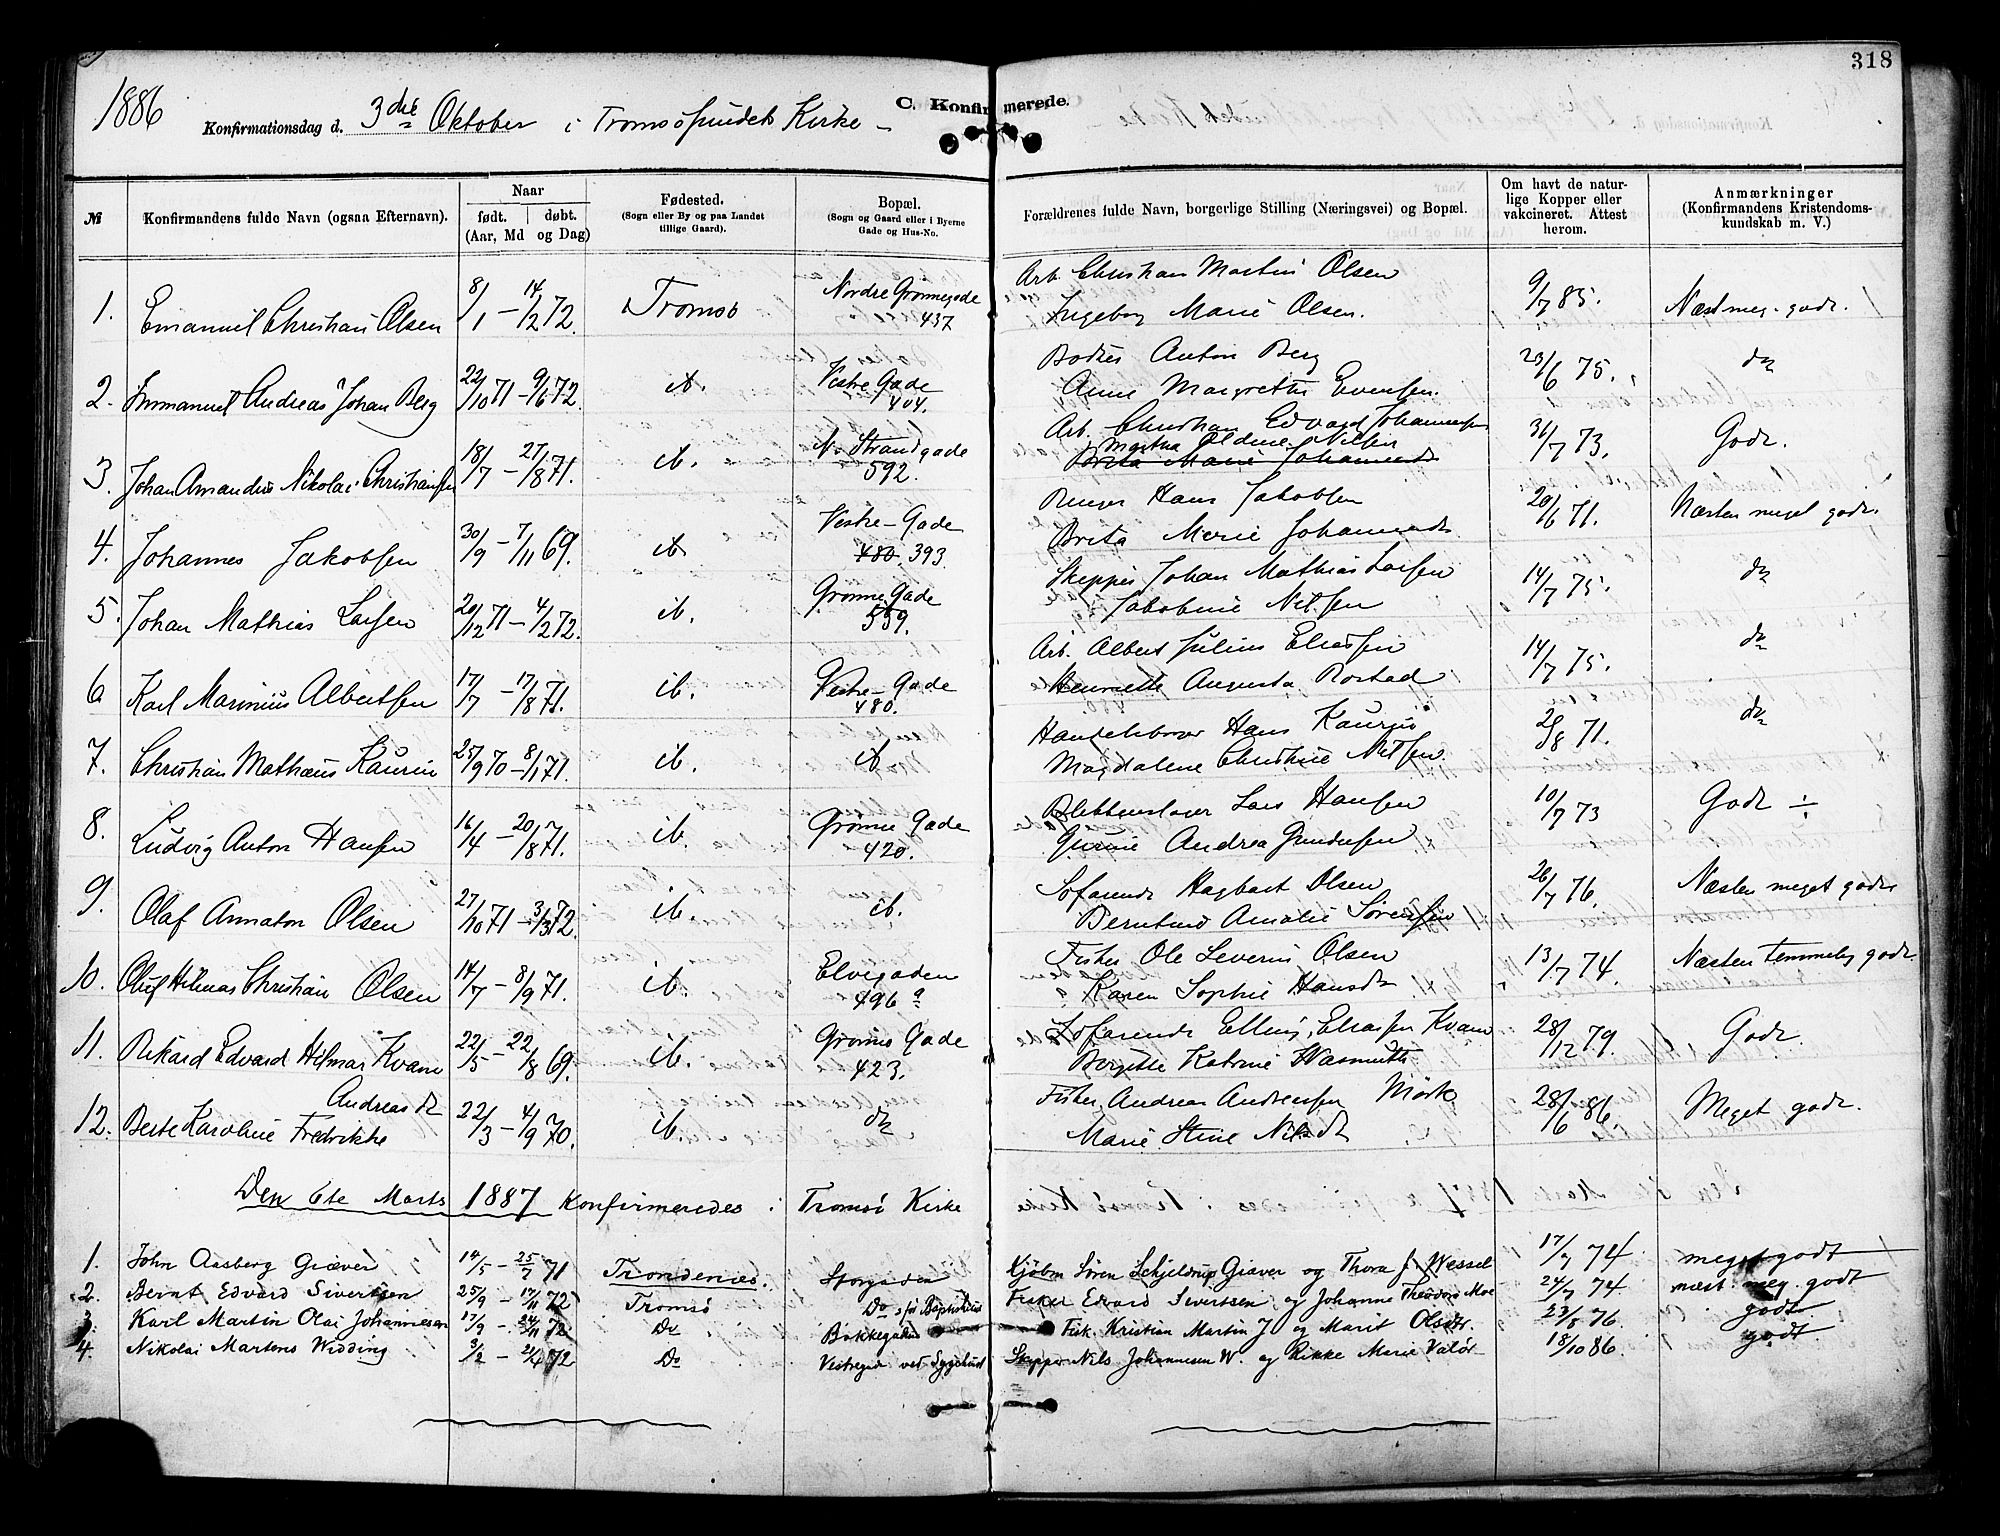 318
1886
C. Konfirmerede.
Konfirmationsdag d. 3die Oktober i Tromsösundets Kirke –
№
Konfirmandens fulde Navn (ogsaa Efternavn).
Naar
født. døbt.
(Aar, Md og Dag)
Fødested.
(Sogn eller By og paa Landet
tillige Gaard).
Bopæl.
(Sogn og Gaard eller i Byerne
Gade og Hus-No.
Forældrenes fulde Navn, borgerlige Stilling (Næringsvei) og Bopæl.
Om havt de natur-
lige Kopper eller
vakcineret. Attest
herom.
Anmærkninger
(Konfirmandens Kristendoms-
kundskab m. V.)
1. Emanuel Christian Olsen 8/1 – 14/2 72. Tromsö Nordre Grönnegade 437 Arb. Christian Martin Olsen
Ingeborg Marie Olsen. 9/7 85. Næst meg. godt.
2. Immanuel Andreas Johan Berg 22/10 71 – 9/6 72. ib. Vestre Gade 404. Anton Berg
Anne Margrethe Evensen. 23/6 75. do
3. Johan Amandus Nikolai Christiansen 18/7 – 27/8 71. ib. N. Strandgade 592. Arb. Christian Edvard Johannesen
Martha Oldine Nilsen
Brita Marie Johannesd 31/7 73. Godt.
4. Johannes Jakobsen 30/9 – 7/11 69. ib. Vestre-Gade 480. 393 Hans Jakobsen
Brita Marie Johannesd. 20/6 71. Næsten meget godt.
5. Johan Mathias Larsen 20/12 71 – 4/2 72. ib. Grönne Gade 559. Skipper Johan Mathias Larsen
Jakobine Nilsen 14/7 75. do
6 Karl Marinius Albertsen 17/7 – 17/8 71. ib. Vestre-Gade 480. Arb. Albert Julius Eliassen
Henriette Augusta Rostad 14/7 75. do
7. Christian Mathæus Kaurin 25/9 70 – 8/1 71. ib. ib Hans Kaurin
Magdalene Christine Nilsen. 71. do
8. Ludvig Anton Hansen 16/4 – 20/8 71. ib. Grönne Gade 420. Blikkenslager Lars Hansen
Gurine Andrea Gundersen 10/7 73 Godt ÷
9 Olaf Annaton Olsen 27/10 71 – 3/3 72. ib. ib. Sofarende Hagbart Olsen
Berntine Amalie Sörensen 26/7 76. Næsten meget godt
10. Oluf Hilmar Christian Olsen 14/7 – 8/9 71. ib. Elvegaden 496 a Fisker Ole Severin Olsen
Karen Sophie Hansdt 13/7 74. Næsten temmelig godt
11. Rikard Edvard Hilmar Kvam 22/5 – 22/8 69. ib. Grönne Gade 423. Sofarende Elling Eliassen Kvam
Birgitte Katrine Wasmuth 28/12 79. Godt.
12. Berte Karoline Fredrikke Andreasdt 22/3 – 4/9 70. ib. do Fisker Andreas Andreassen Mörk
Marie Stine Nilsdt 28/6 86. Meget godt.
Den 6te Marts 1887 konfirmeredes i Tromsö Kirke
1. John Aasberg Giæver 14/5 – 25/7 71 Trondenæs. Storgaden Kjöbm Sören Schjeldrup Giæver og Thora J. Wessel 17/7 74 meget godt
2. Bernt Edvard Sivertsen 25/9 – 17/11 72 Tromsö Do Fisker Edvard Sivertsen og Johanne Theodora Moe 24/7 74 næst. meg. godt
3. Karl Martin Olai Johannesen 17/9 – 24/11 72 Do Bakkegaden Fisk. Kristian Martin J. og Marit Olsdtr. 23/8 76 godt
4. Nikolai Martens Widding 3/2 – 21/4 72 Do Vestregd ved Sygehuset Skipper Nils Johannesen W. og Rikke Marie Valör 18/10 86. godt